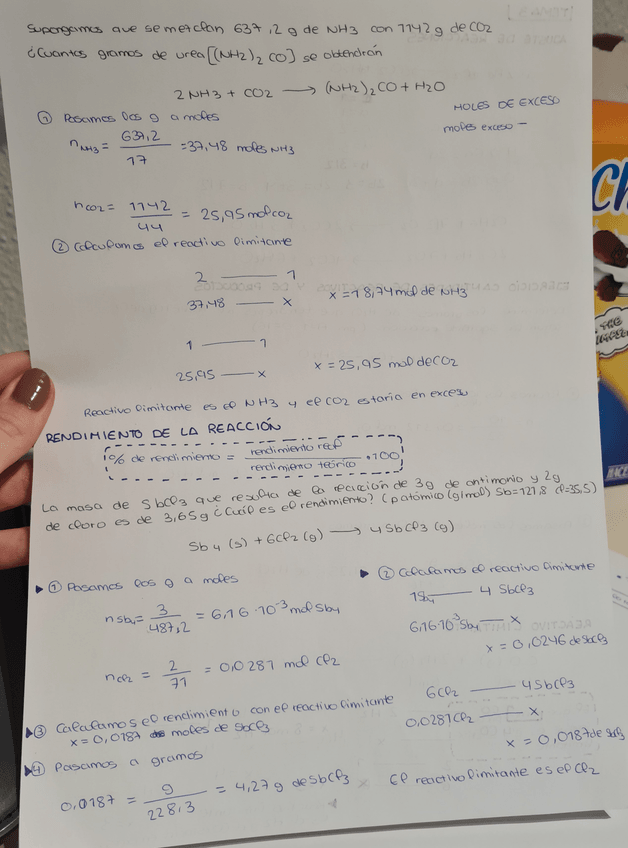 Supongamos que se mezclan 637,2 g de NH3 con 1142 g de CO2
¿Cuantos gramos de urea [(NH2)2 CO] se obtendrán
2 NH3 + CO2 → (NH2)2CO + H2O
MOLES DE EXCESO
moles exceso =
① Pasamos los g a moles
nNH3 = 637,2 / 17 = 37,48 moles NH3
nCO2 = 1142 / 44 = 25,95 mol CO2
② Calculamos el reactivo limitante
2 —— 1
37,48 —— x x = 18,74 mol de NH3
1 —— 1
25,95 —— x x = 25,95 mol de CO2
Reactivo limitante es el NH3 y el CO2 estaría en exceso
RENDIMIENTO DE LA REACCIÓN
% de rendimiento = rendimiento real / rendimiento teórico · 100
La masa de SbCl3 que resulta de la reacción de 3g de antimonio y 2g
de cloro es de 3,65g ¿Cuál es el rendimiento? (p atómico (g/mol) Sb=121,8 Cl=35,5)
Sb4 (s) + 6Cl2 (g) → 4SbCl3 (g)
① Pasamos los g a moles
nSb4 = 3 / 487,2 = 6,16·10⁻³ mol Sb4
nCl2 = 2 / 71 = 0,0281 mol Cl2
② Calculamos el reactivo limitante
1Sb4 —— 4 SbCl3
6,16·10³Sb4 —— x
x = 0,0246 de SbCl3
6Cl2 —— 4SbCl3
0,0281Cl2 —— x
x = 0,0187 de SbCl3
El reactivo limitante es el Cl2
③ Calculamos el rendimiento con el reactivo limitante
x = 0,0187 moles de SbCl3
④ Pasamos a gramos
0,0187 = g / 228,3 = 4,27g de SbCl3
Ch
THE